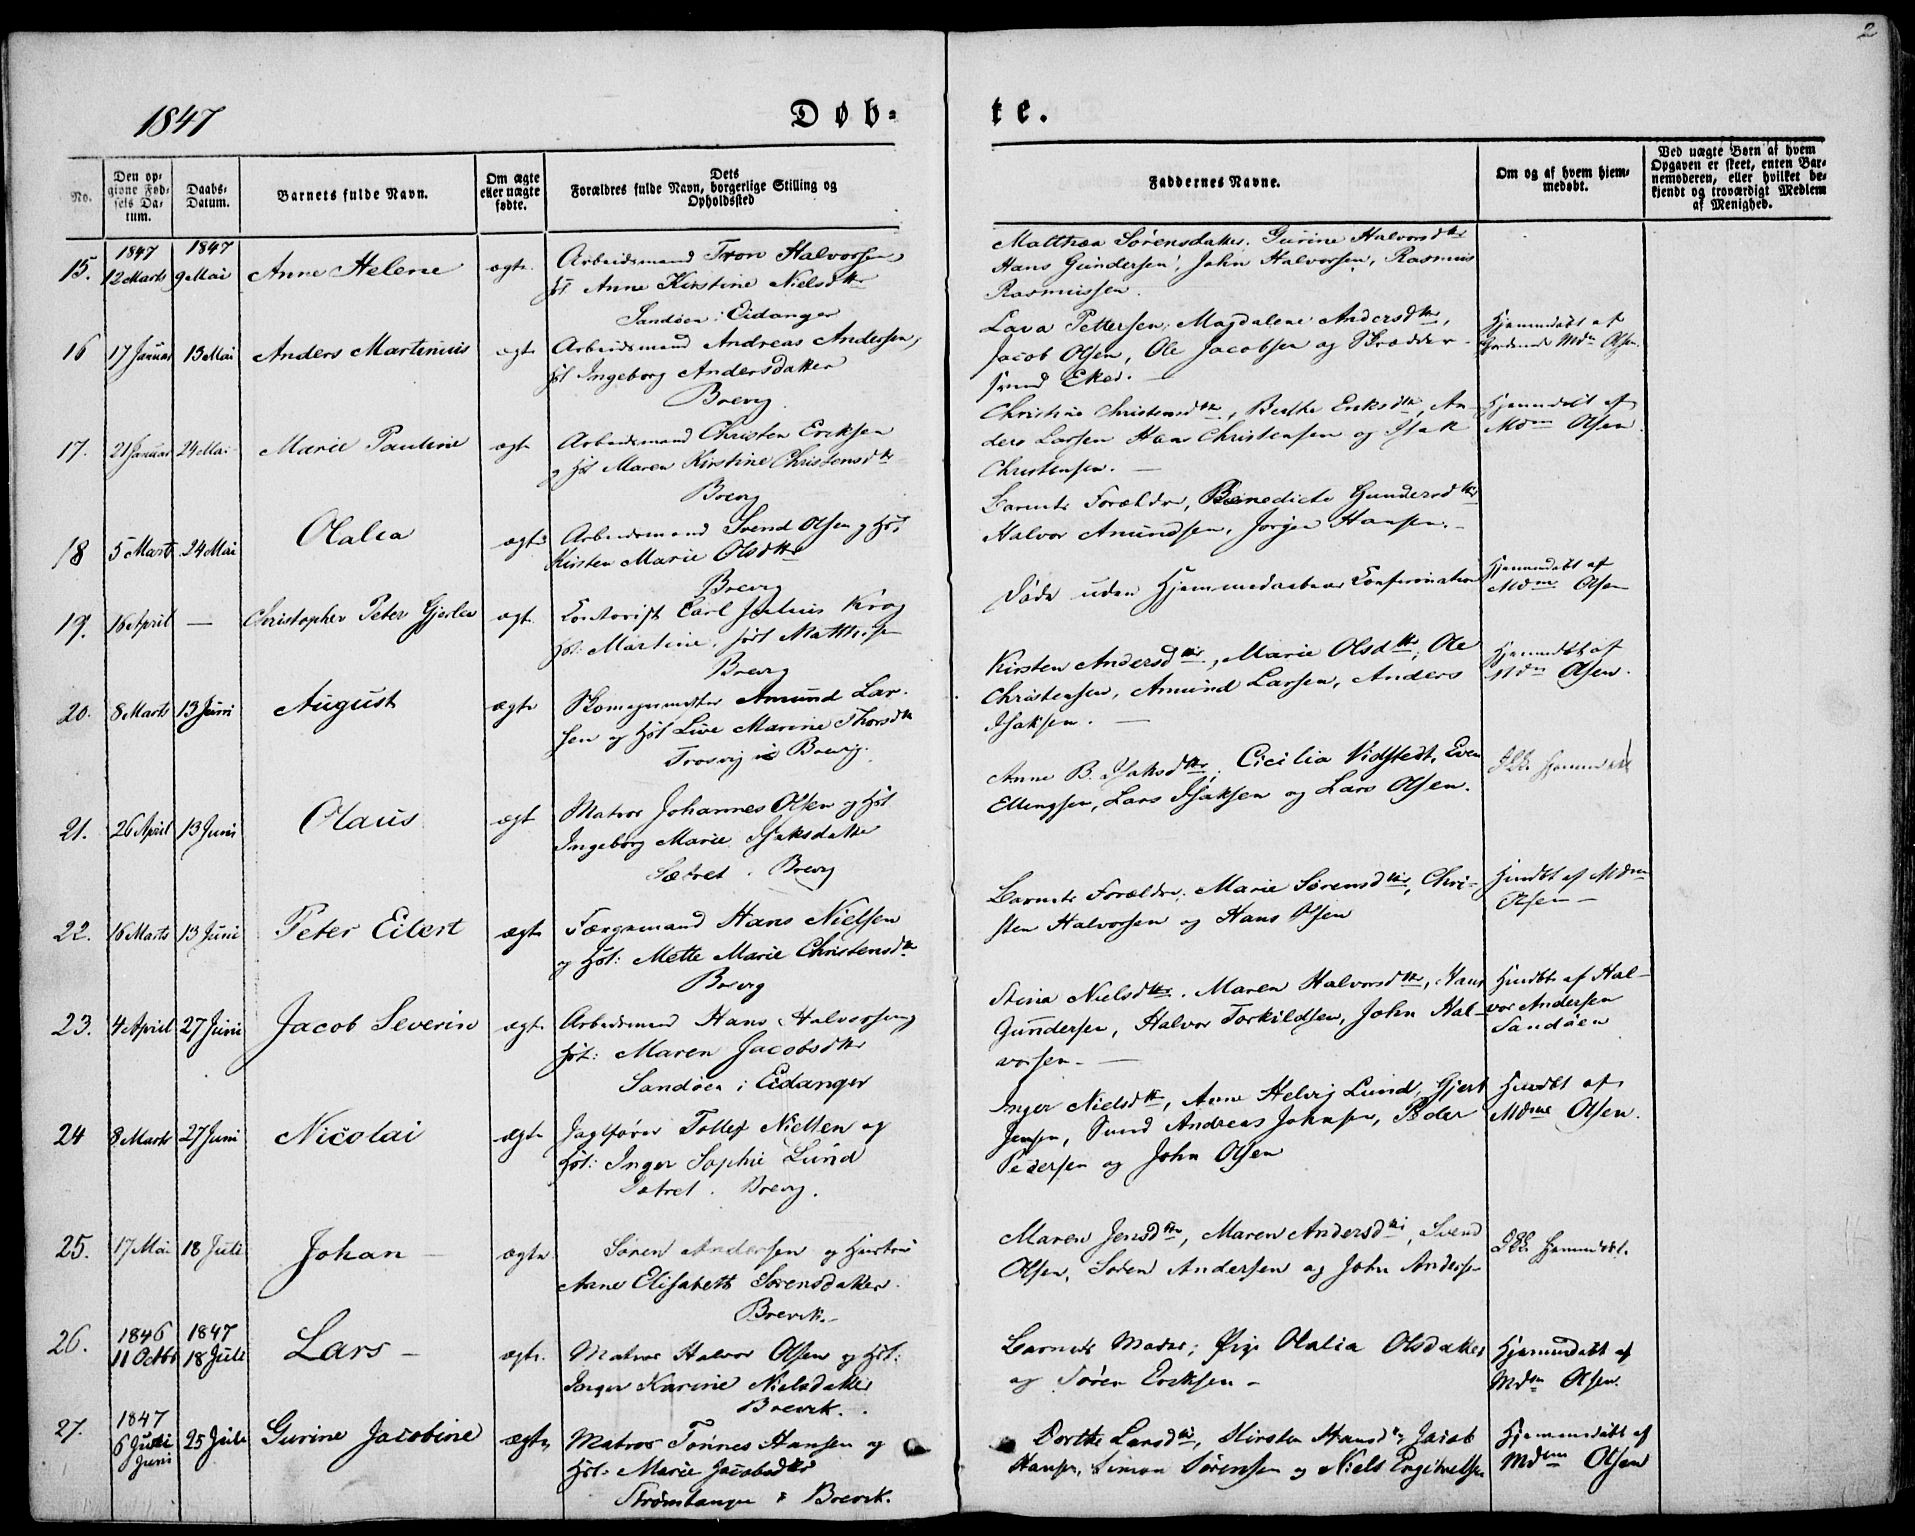 2
1847
Døb-
te.
No.
Den opgivne Fødsels Datum.
Daabs-Datum.
Barnets fulde Navn.
Om ægte eller uægte fødte.
Dets Forældres fulde Navn, borgerlige Stilling og Opholdssted
Faddernes Navne.
Om og af hvem hjemmedøbt.
Ved uægte Børn af hvem Opgaven er skeet, enten Barnemoderen, eller hvilket bekjendt og troværdigt Medlem af Menighed.
15. 1847 12 Marts 1847 9 Mai Anne Helene ægte
Arbeidsmand Tron Halvorsen,
Hst Anne Kirstine Nielsdttr
Sandøen i Eidanger
Matthea Sørensdatter. Gurine Halvorsdttr
Hans Gundersen, John Halvorsen, Rasmus
Rasmussen.
16 17 Januar 13 Mai Anders Martinius ægte
Arbeidsmand Andreas Andersen,
Hst Ingeborg Andersdatter
Brevig
Lava Pettersen, Magdalene Andersdttr,
Jacob Olsen, Ole Jacobsen og Skrædder-
svend Eker.
Hjemmedøbt af
Mdm Olsen.
17. 21 Januar 24 Mai Marie Pauline ægte
Arbeidsmand Christen Ericksen
og Hst Maren Kirstine Christensdttr
Brevig
Christine Christensdttr, Berthe Eriksdttr, An-
ders Larsen Hans Christensen og Isak
Christensen.
Hjemmedøbt af
Mdm Olsen.
18 5 Marts 24 Mai Olalia ægte
Arbeidsmand Svend Olsen og Hst
Kirsten Marie Olsdttr
Brevig
Barnets Forældre, Benedicte Gundersdttr
Halvor Amundsen, Jørgen Hansen.
19. 16 April — Christopher Peter Gjerløv ægte
Contorist Carl Julius Krog
Hst. Martine, født Matthisen
Brevig
Døde uden Hjemmedaabens Confirmation
Hjemmedøbt af
Mdm Olsen
20. 8 Marts 13 Juni August ægte
Skomagermester Amund Lar-
sen og Hst Live Marine Thorsdttr
Trosvig i Brevig.
Kirsten Andersdttr, Marie Olsdttr, Ole
Christensen, Amund Larsen, Anders
Isaksen.
Hjemmedøbt af
Mdm Olsen.
21. 26 April 13 Juni Olaus ægte
Matros Johannes Olsen og Hst
Ingeborg Marie Isaksdatter
Sætret. Brevig
Anne B. Isaksdttr, Cicilia Vidstedt, Even
Ellingsen, Lars Isaksen og Lars Olsen.
Ikke hjemmedøbt
22. 16 Marts 13 Juni Peter Eilert ægte
Færgemand Hans Nielsen
og Hst: Mette Marie Christensdttr
Brevig
Barnets Forældre, Marie Sørensdttr, Chri-
sten Halvorsen og Hans Olsen
Hmdbt af Mdm
Olsen
23. 4 April 27 Juni Jacob Severin ægte
Arbeidsmand Hans Halvorsen og
Hst: Maren Jacobsdttr
Sandøen i Eidanger
Stina Nielsdttr. Maren Halvorsdttr, Hans
Gundersen, Halvor Torkildsen, John Hal-
vorsen.
Hmdbt af Hal-
vor Andersen
Sandøen
24 8 Marts 27 Juni Nicolai ægte
Jagtfører Tollef Nielsen og
Hst: Inger Sophie Lund
Sætret. Brevig.
Inger Nielsdttr, Anne Helvig Lund, Gjert
Jensen, Svend Andreas Johnsen, Peder
Pedersen og John Olsen
Hmdbt af
Mdme Olsen.
25. 17 Mai 18 Juli Johan ægte
Søren Andersen og Hustru
Anne Elisabeth Sørensdatter.
Brevik.
Maren Jensdttr, Maren Andersdttr, Svend
Olsen, Søren Andersen og John Andersen
Ikke hjemmedøbt.
26. 1846 11 Octbr 1847 18 Juli Lars ægte.
Matros Halvor Olsen og Hst:
Inger Karine Nielsdatter
Brevik.
Barnets Moder, Pige Olalia Olsdatter
og Søren Ericksen
Hjemmedøbt af
Mdm Olsen.
27. 1847 6 Juli Juni 25 Juli Gurine Jacobine ægte,
Matros Tønnes Hansen og
Hst. Marie Jacobsdttr
Strømtangen i Brevik.
Dorthe Larsdttr, Kirsten Hansdttr, Jacob
Hansen, Simon Sørensen og Niels Engebretsen
Hjemmedøbt af
Mdm Olsen